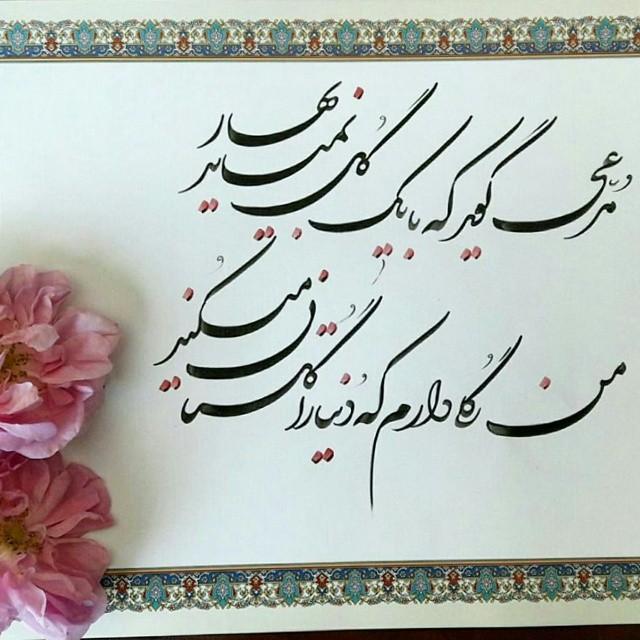 مدعی گوید که با یک گل نمیاید بهار
من گلی دارم که دنیا را گلستان میکند